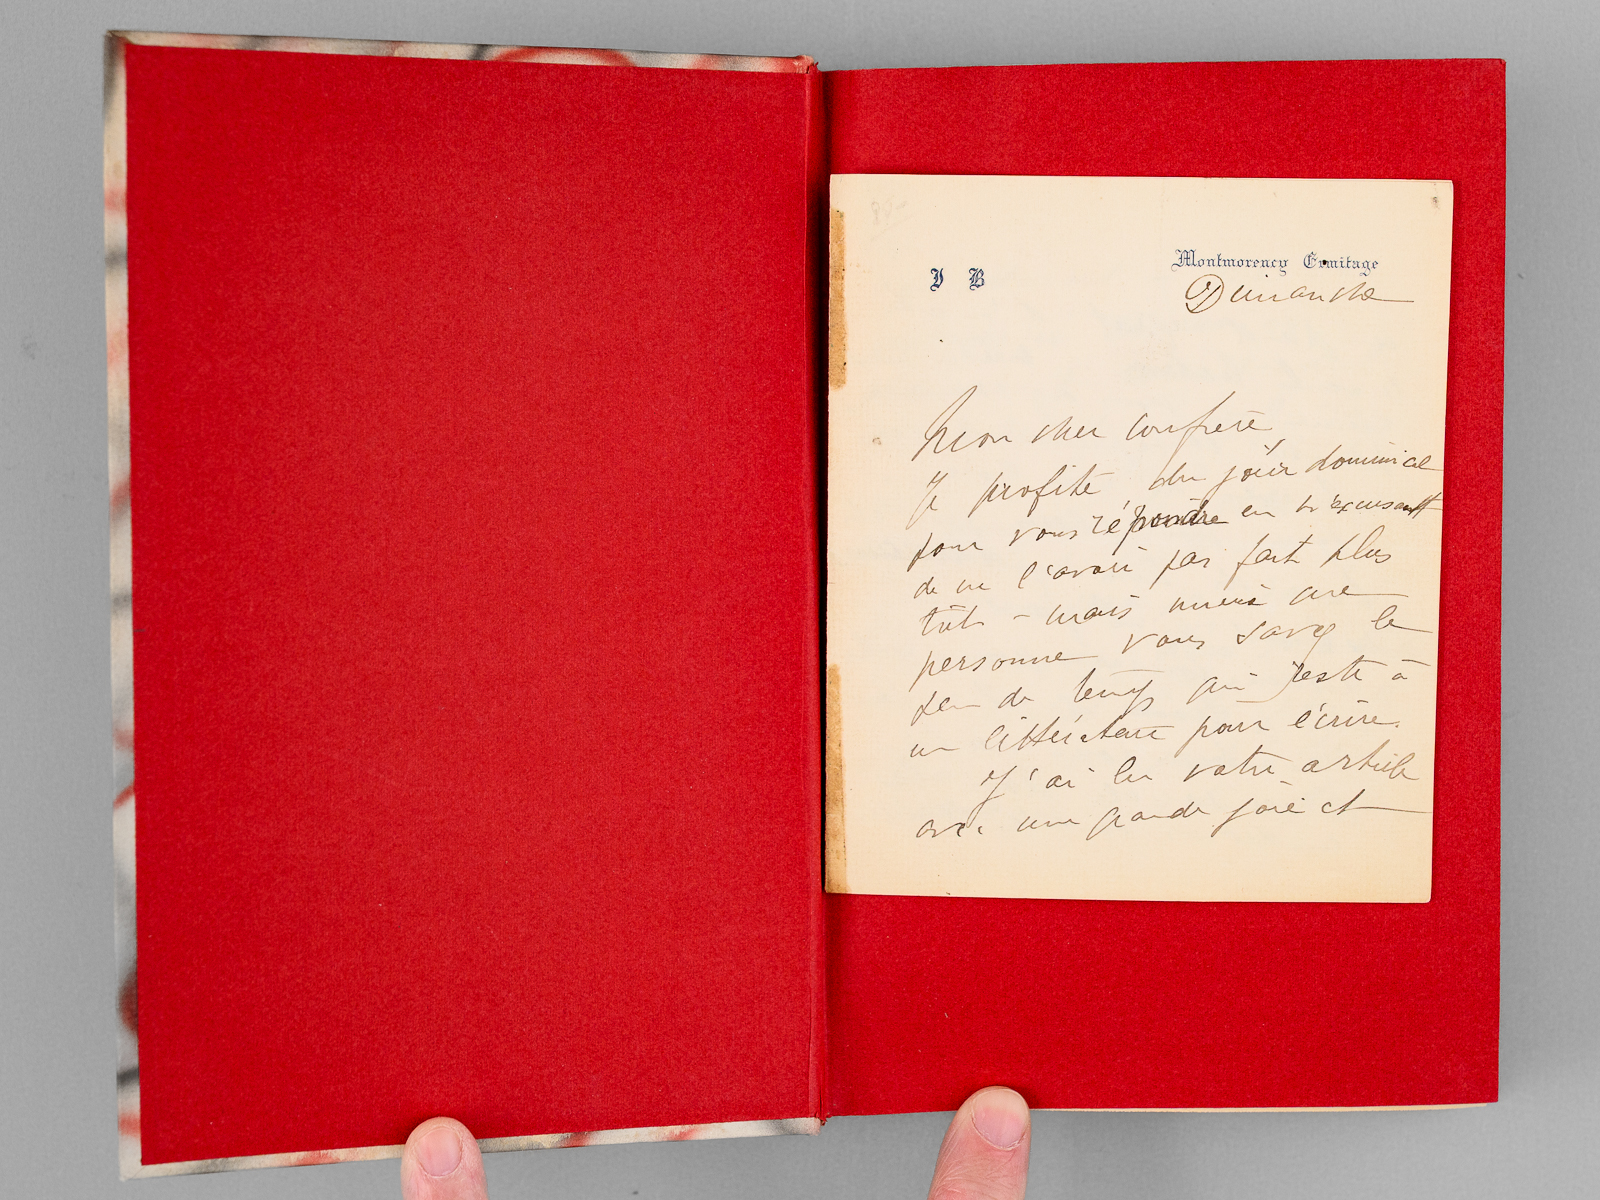 J B
Montmorency Ermitage
Dimanche
Mon cher confrère
Je profite du jour dominical
pour vous répondre en m'excusant
de ne l'avoir pas fait plus
tôt - mais mieux que
personne vous savez le
peu de temps qui reste à
un littérateur pour écrire.
J'ai lu votre article
avec une grande joie et